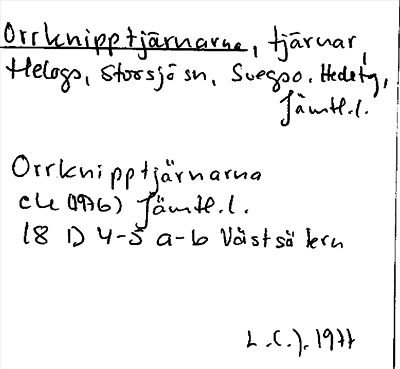 Orrknipptjärnarna, tjärnar,
Helogs, Storsjö sn, Svegs o. Hedetg,
Jämtl.l.
Orrknipptjärnarna
ek (1976) Jämtl.l.
18 D 4-5 a-b Västsätern
L.C.J. 1977